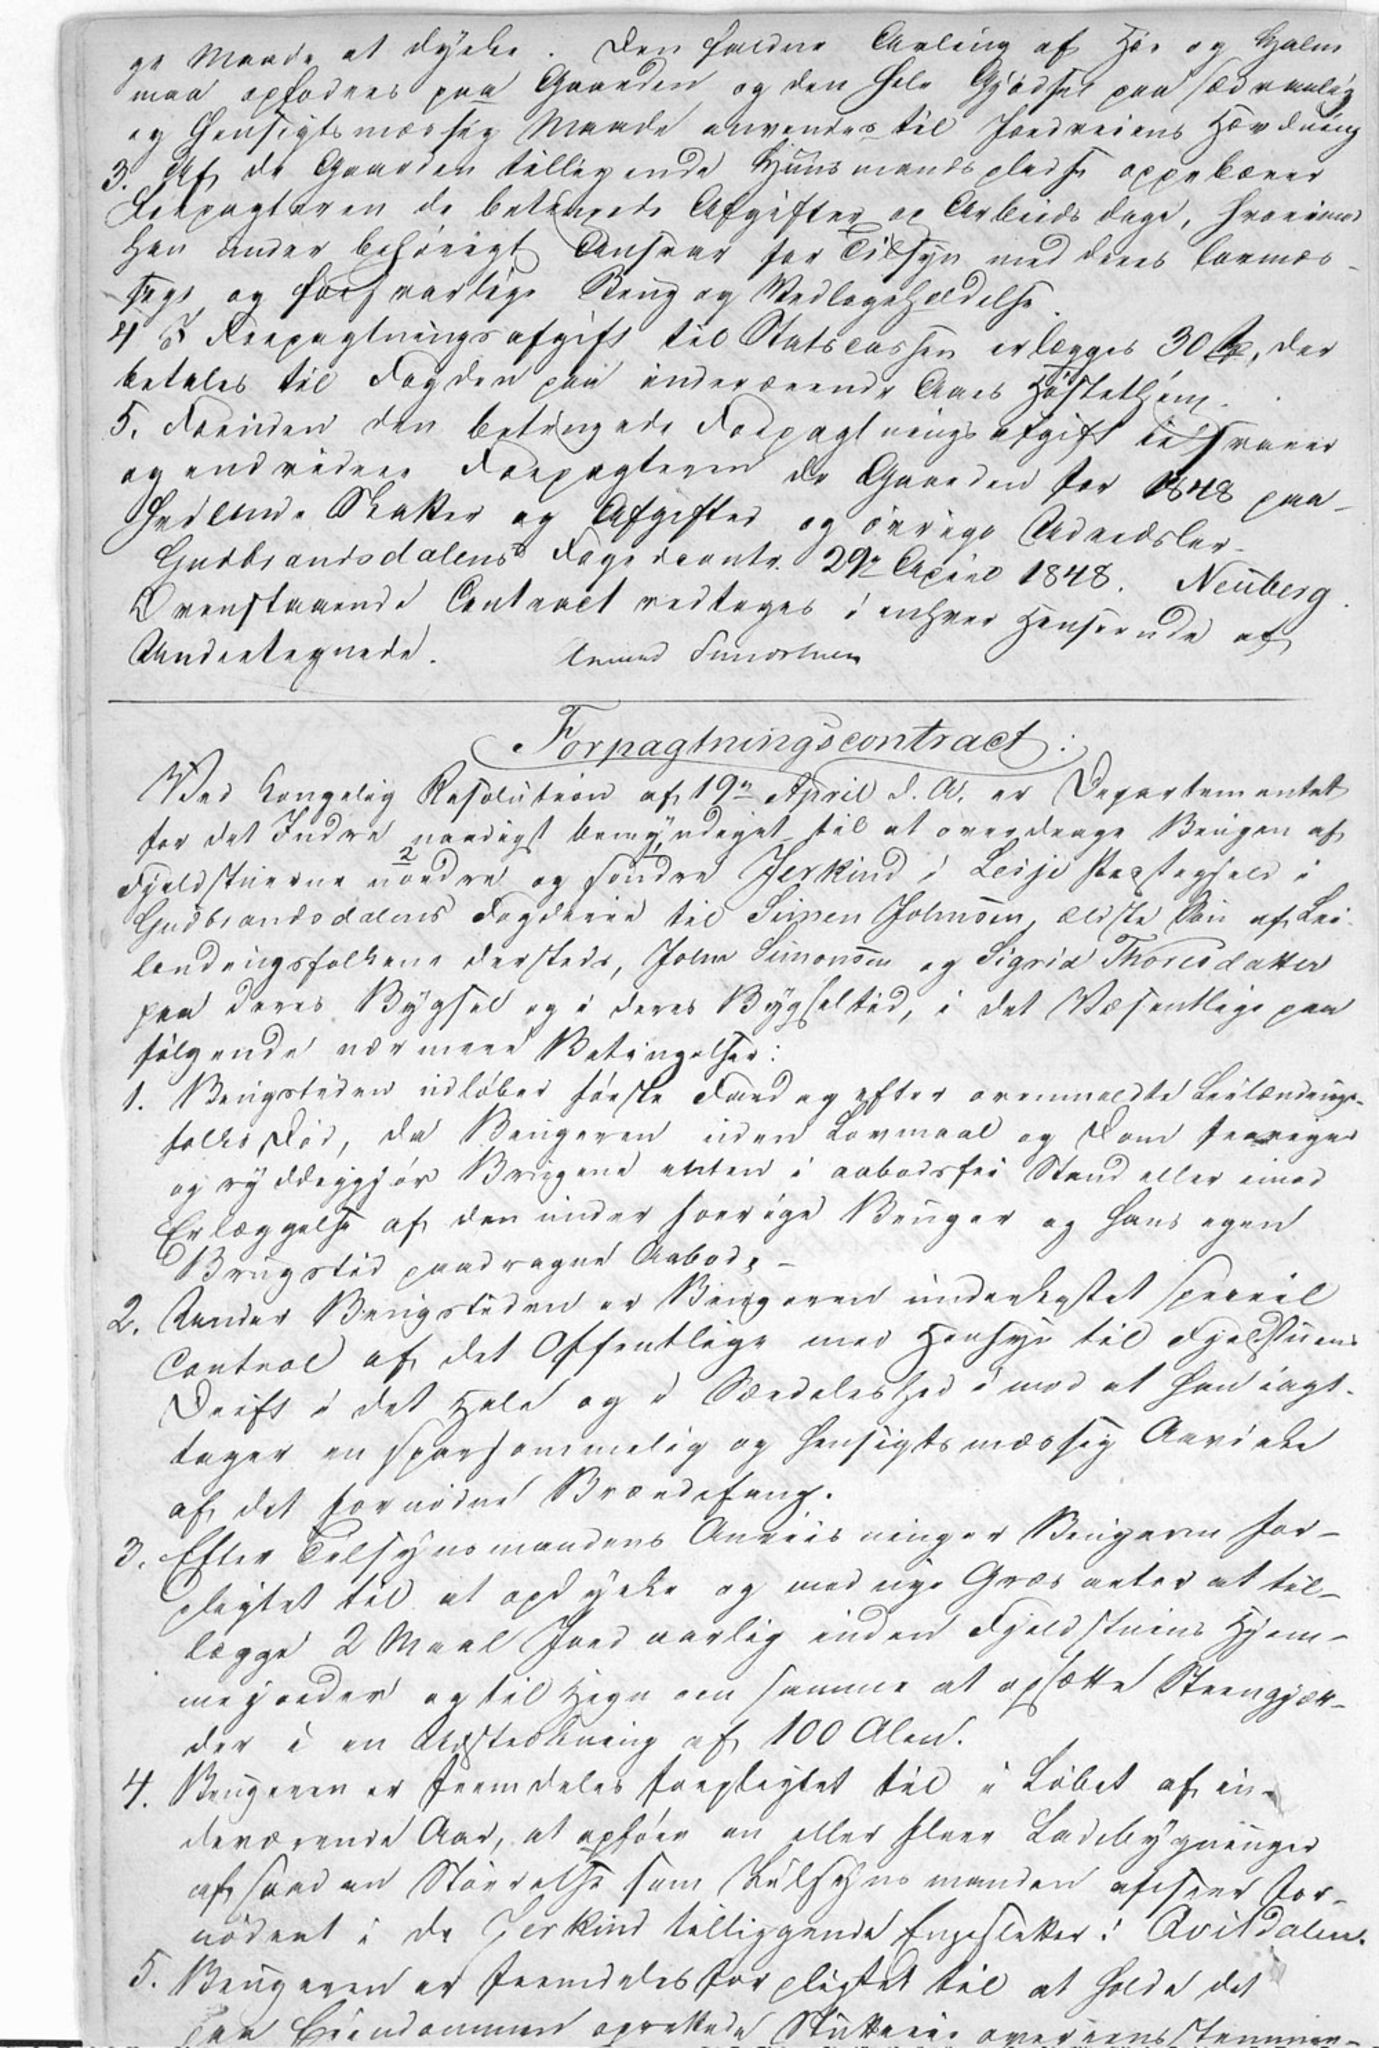 ge Maade at dyrke. Den faldne Avling af Høe og Halm
maa opfodres paa Gaarden og den hele Gjødsel paa sædvanlig
og hensigtsmæssig Maade anvendes til Jordveiens Hævdning
3. Af de Gaarden tilliggende Huusmandspladse oppebærer
Forpagteren de betingede Afgifter og Arbeidsdage, hvorimod
han under behørigt Ansvar fører Tilsyn med deres lovmæs-
sige og forsvarlige Brug og Vedligeholdelse.
4 I Forpagtningsafgift til Statscassen erlægges 30 Spd, der
betales til Fogden paa indeværende Aars Høstething.
5. Foruden den betingede Forpagtningsafgift udsvarer
og endvidere Forpagteren de Gaarden for 1848 paa-
hvilende Skatter og Afgifter og øvrige Udredsler.
Gudbrandsdalens Fogedcontr. 29de April 1848. Neuberg.
Ovenstaaende Contract vedtages i enhver Henseende af
Undertegnede. Simonsen
Forpagtningscontract:
Ved Kongelig Resolution af 19de April d. A. er Departementet
for det Indre naadigst bemyndiget til at overdrage Brugen af
Fjeldstuerne nordre og søndre Jerkind i Lesje Præstegjeld i
Gudbrandsdalens Fogderie til Simen Johnsen, ældste Søn af Lei-
lændingsfolkene dersteds, John Simonsen og Sigrid Thoresdatter
paa deres Bygsel og i deres Bygseltid, i det Væsentlige paa
følgende nærmere Betingelser:
1. Brugstiden udløber første Fardag efter ovenmeldte Leilændings-
folks Død, da Brugeren uden Lovmaal og Dom fraviger
og ryddeggjør Brugene enten i aabodsfri Stand eller imod
Erlæggelse af den under forrige Bruger og hans egen
Brugstid paadragne Aabod. -
2. Under Brugstiden er Brugeren underkastet speciel
Control af det Offentlige med Hensyn til Fjeldstuens
Drift i det Hele og i Særdeleshed imod at han iagt-
tager en sparsommelig og hensigtsmæssig Aavirke
af det fornødne Brændefang.
3. Efter Tilsynsmandens Anviisning er Brugeren for-
pligtet til at opdyrke og med nye Græsarter at til-
lægge 2 Maal Jord aarlig inden Fjeldstuens Hjem-
mejorder og til Hegn om samme at opsætte Steengjær-
der i en Udstrekning af 100 Alen.
4. Brugeren er fremdeles forpligtet til i Løbet af in-
deværende Aar, at opføre en eller flere Ladebygninger
af saadan Størrelse som Tilsynsmanden anseer for-
nødent i de Jerkind tilliggende Engesletter i Avildalen.
5. Brugeren er fremdeles forpligtet til at holde det
paa Eiendommen oprettede Stutterie overeensstemmen-